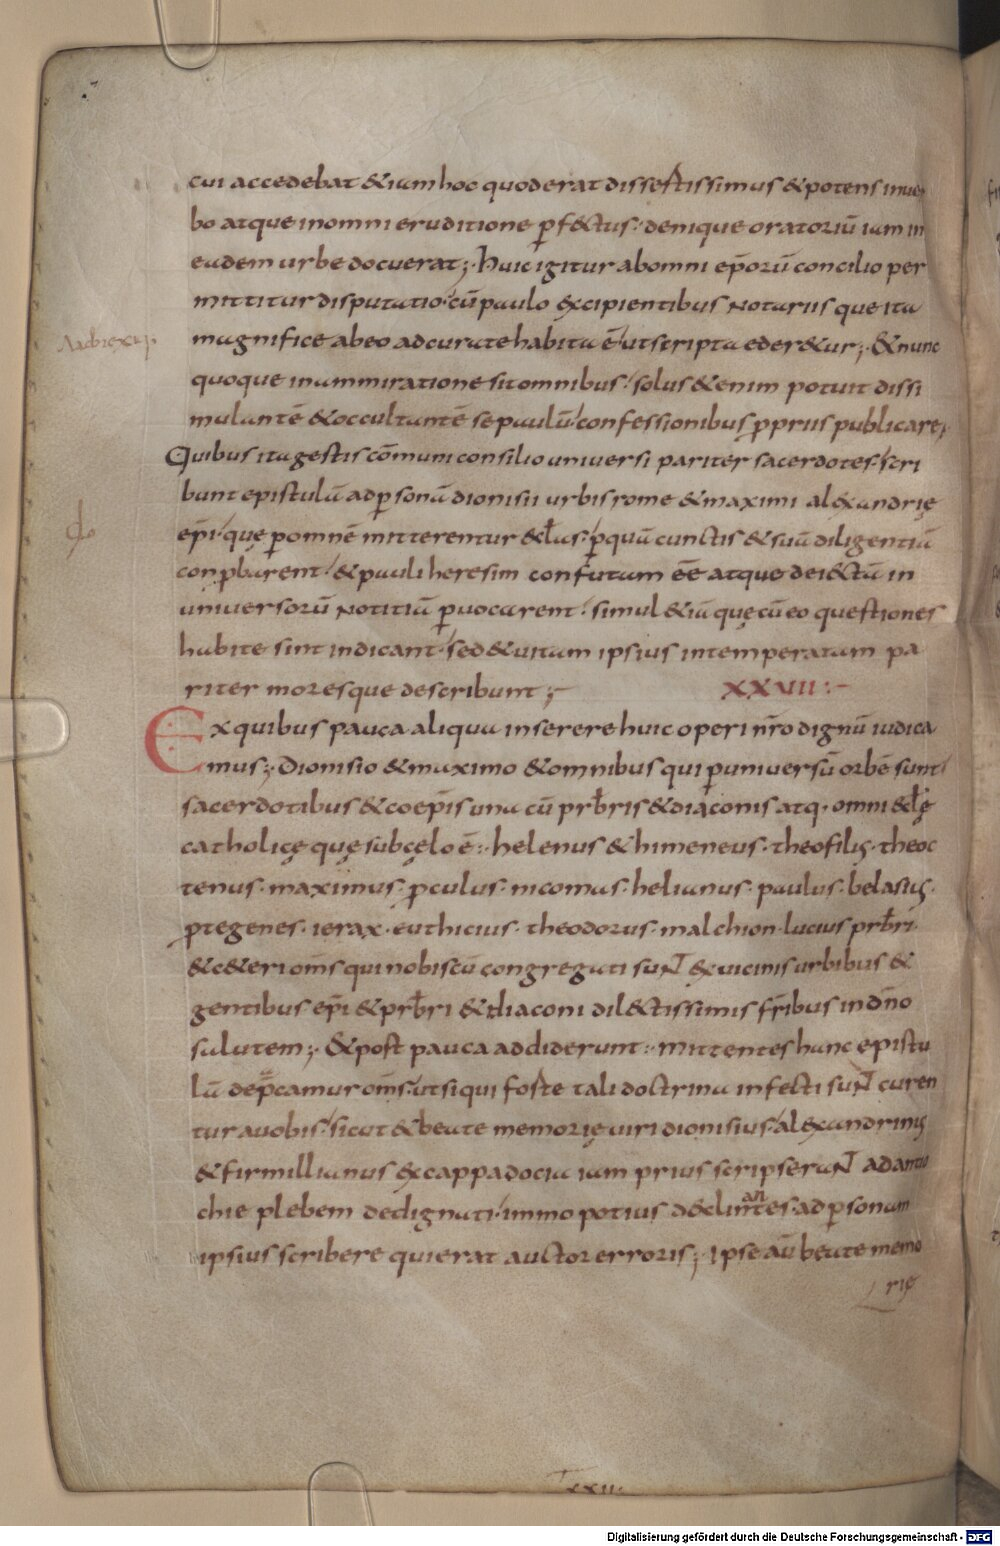 cui accedebat &iam hoc quod erat dissertissimus &potens in uer
bo atque in omni eruditione ꝑf&ctus· denique oratoriū iam in
eadem urbe docuerat;· huic igitur ab omni ep̄orū concilio per
mittitur disputatio· cū paulo excipientibus notariis que ita
magnifice ab eo adcurate habita ē· ut scripta eder&ur;· &nunc
quoque in ammiratione sit omnibus· solus &enim potuit dissi
mulantē &occultantē se paulū· confessionibus ꝓpriis publicare;
Quibus ita gestis cōmuni consilio universi pariter sacerdotes· scri
bunt epistulā ad ꝑsonā dionisii urbis rome &maximi alexandrię
ep̄i· quę ꝑ omnē mitterentur &cl̄as· ꝑ quā cunctis &suā diligentiā
conꝓbarent· &pauli heresim confutatam eē atque dei&ctā in
universorū notitiā ꝓuocarent· simul &iā quę cū eo questiones
habite sint indicant· sed &uitam ipsius intemperatam pa
riter moresque describunt;
XXVII:
Ex quibus pauca aliqua inserere huic operi nr̄o dignū iudica
mus;· Dionisio &maximo &omnibus qui ꝑ uniuersū orbē sunt
sacerdotibus &coep̄is una cū prb̄ris &diaconis atq· omni &cl̄ę
catholicę quę sub cęlo ē:· helenus &himeneus· theofilus· theoc
tenus· maximus· ꝓculus· nicomas· helianus· paulus· belasus·
ꝓtegenes· ierax· euthicius· theodorus· malchion· lucius prb̄ri·
&c&eri om̄s qui nobiscū congregati sunt ex uicinis urbibus &
gentibus ep̄i &prb̄ri &diaconi dil&ctissimis fr̄ibus in dn̄o
salutem;· &post pauca addiderunt:· mittentes hanc epistu
lā dep̄camur om̄s· ut si qui forte tali doctrina infecti sunt curen
tur a uobis· sicut &beate memorię uiri dionisius· alexandrinus
&firmillianus ex cappadocia iam prius scripserunt ad antio
chie plebem dedignati· immo potius d&clinantes· ad ꝑsonam
ipsius scribere qui erat auctor erroris;· ipse aū beate memo
rię
XXII·
Digitalisierung gefördert durch die Deutsche Forschungsgemeinschaft - DFG